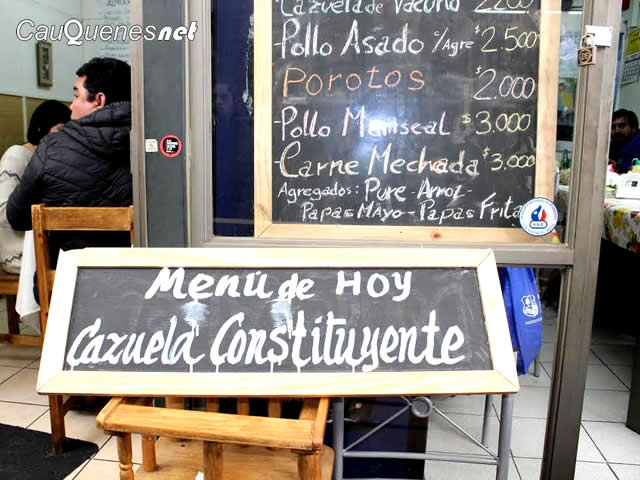 CauQuenesnet
Cazuela de Vacuno 2200
Pollo Asado S/Agre $2.500
Porotos $2.000
Pollo Mariscal $3.000
Carne Mechada $3.000
Agregados: Pure - Arroz -
Papas Mayo - Papas Fritas
Menú de HOY
Cazuela Constituyente